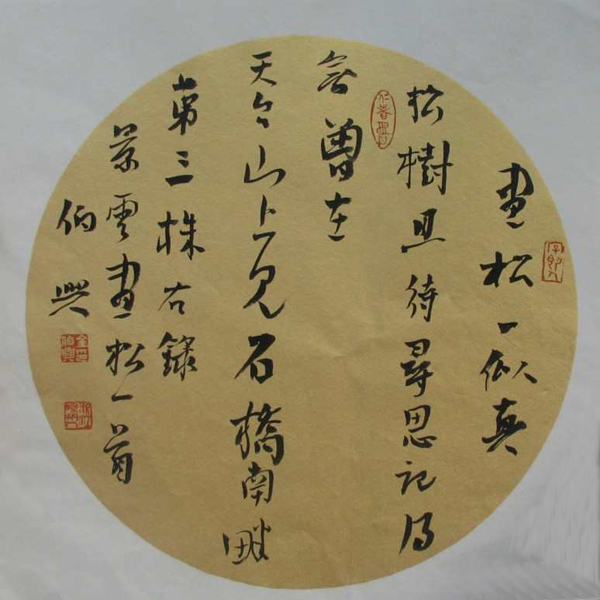 畫松一似真
松樹且待尋思記得
無曾在
天台山上見石橋南畔
第三株右錄
景雲畫松一首
伯興